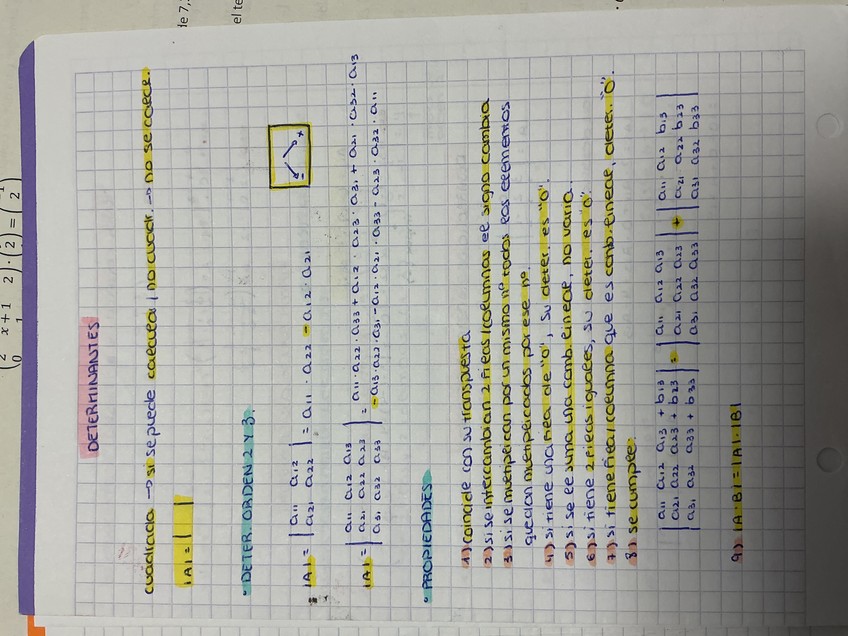 DETERMINANTES
cuadrada → si se puede calcular / no cuadr. → no se calcular.
|A| = | |
• DETER. ORDEN 2 Y 3.
|A| = | a11 a12 | = a11 · a22 - a12 · a21
| a21 a22 |
|A| = | a11 a12 a13 | = a11 · a22 · a33 + a12 · a23 · a31 + a21 · a32 · a13
| a21 a22 a23 | - a13 · a22 · a31 - a12 · a21 · a33 - a23 · a32 · a11
| a31 a32 a33 |
• PROPIEDADES
1) coincide con su transpuesta
2) si se intercambian 2 filas/columnas el signo cambia
3) si se multiplican por un mismo nº todos los elementos
quedan multiplicados por ese nº.
4) si tiene una fila de "0", su deter. es "0".
5) si se le suma una comb. lineal, no varia.
6) si tiene 2 filas iguales, su deter. es "0".
7) si tiene fila/columna que es comb. lineal, deter. "0".
8) se cumple:
| a11 a12 a13 + b13 | = | a11 a12 a13 | + | a11 a12 b13 |
| a21 a22 a23 + b23 | | a21 a22 a23 | | a21 a22 b23 |
| a31 a32 a33 + b33 | | a31 a32 a33 | | a31 a32 b33 |
9) |A · B| = |A| · |B|